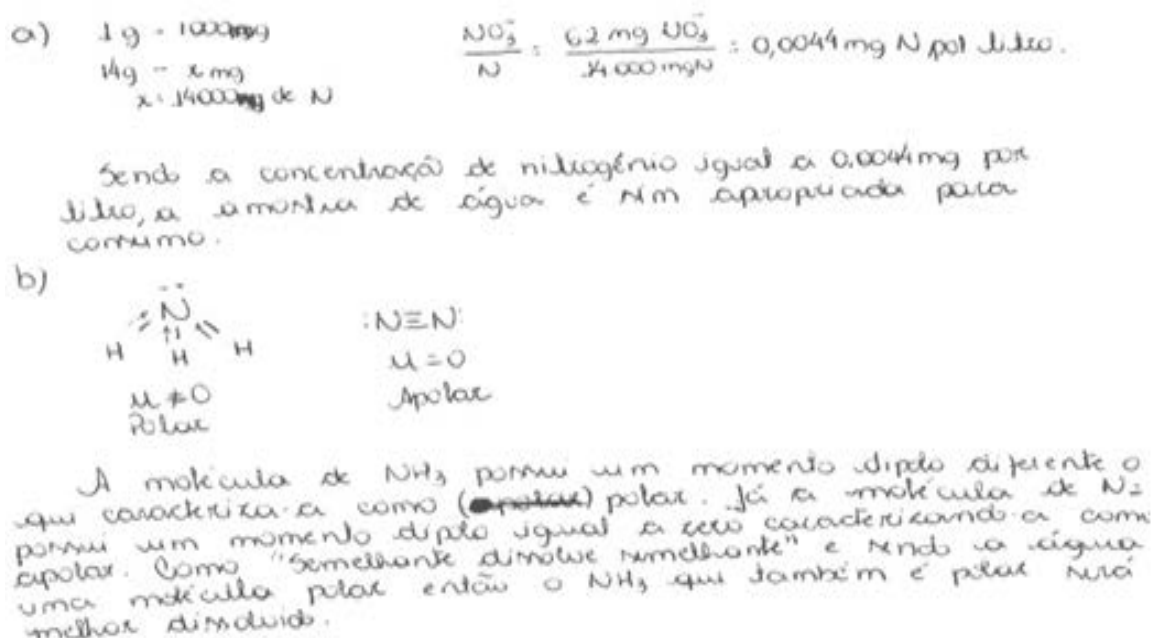 a) 1g - 1000mg
14g - x mg
x = 14000mg de N
NO₃⁻/N = 62 mg NO₃⁻/14000 mg N = 0,0044 mg N por litro.
Sendo a concentração de nitrogênio igual a 0,0044 mg por
litro, a amostra de água é sim apropriada para
consumo.
b)
N
H H H
μ ≠ 0
Polar
:N≡N:
μ = 0
Apolar
A molécula de NH₃ possui um momento dipolo diferente o
que caracteriza-a como (apolar) polar. Já a molécula de N₂
possui um momento diplo igual a zero caracterizando-a como
apolar. Como "Semelhante dissolve semelhante" e sendo a água
uma molécula polar então o NH₃ que também é polar será
melhor dissolvido.